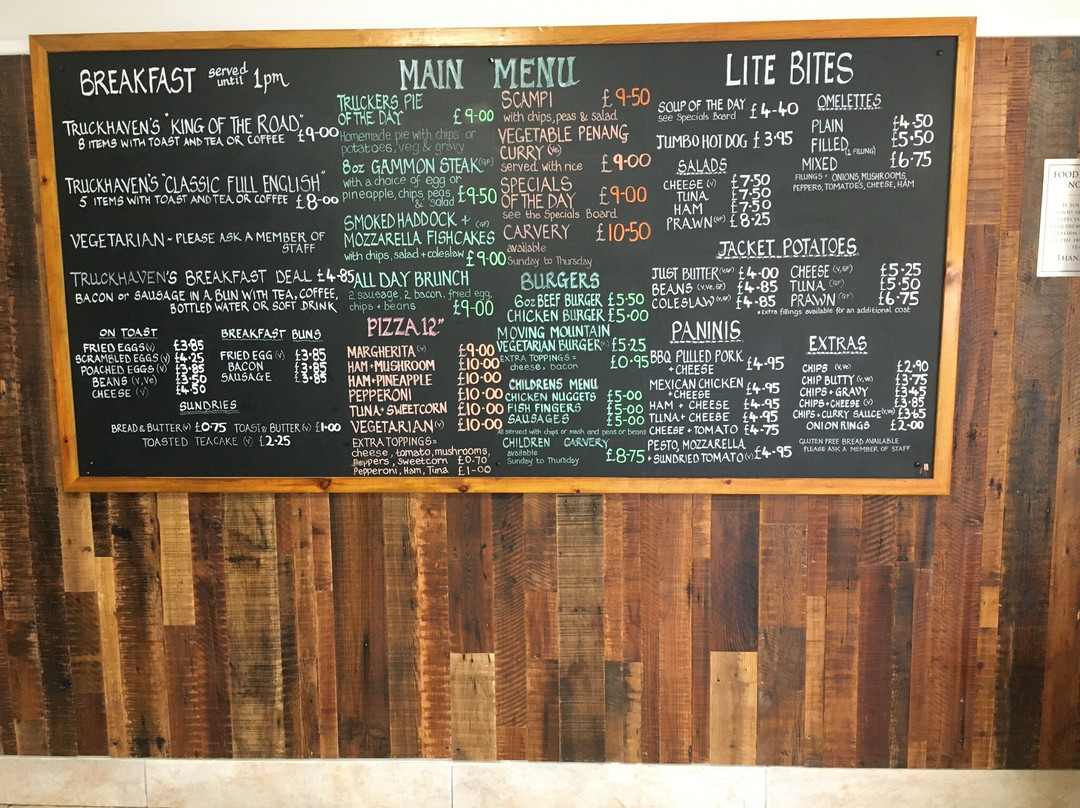 BREAKFAST served until 1pm
TRUCKHAVEN'S "KING OF THE ROAD"
8 ITEMS WITH TOAST AND TEA OR COFFEE £9-00
TRUCKHAVEN'S "CLASSIC FULL ENGLISH"
5 ITEMS WITH TOAST AND TEA OR COFFEE £8-00
VEGETARIAN ~ PLEASE ASK A MEMBER OF
STAFF
TRUCKHAVEN'S BREAKFAST DEAL £4-85
BACON or SAUSAGE IN A BUN WITH TEA, COFFEE,
BOTTLED WATER OR SOFT DRINK
ON TOAST
FRIED EGGS (V) £3-85
SCRAMBLED EGGS (V) £4-25
POACHED EGGS (V) £3-85
BEANS (V, Ve) £3-50
CHEESE (V) £4-50
BREAKFAST BUNS
FRIED EGG (V) £3-85
BACON £3-85
SAUSAGE £3-85
SUNDRIES
BREAD & BUTTER (V) £0-75 TOAST & BUTTER (V) £1-00
TOASTED TEACAKE (V) £2-25
MAIN MENU
TRUCKERS PIE
OF THE DAY £9-00
Homemade pie with chips or
potatoes, veg & gravy
8oz GAMMON STEAK (GF)
with a choice of egg or
pineapple, chips, peas £9-50
& salad
SMOKED HADDOCK +
MOZZARELLA FISHCAKES (GF)
with chips, salad + coleslaw £9-00
ALL DAY BRUNCH
2 sausage, 2 bacon, fried egg,
chips + beans £9-00
PIZZA 12"
MARGHERITA (V) £9-00
HAM + MUSHROOM £10-00
HAM + PINEAPPLE £10-00
PEPPERONI £10-00
TUNA + SWEETCORN £10-00
VEGETARIAN (V) £10-00
EXTRA TOPPINGS =
cheese, tomato, mushrooms,
Peppers, Sweetcorn £0-70
Pepperoni, Ham, Tuna £1-00
SCAMPI £9-50
with chips, peas & salad
VEGETABLE PENANG
CURRY (Ve)
served with rice £9-00
SPECIALS
OF THE DAY £9-00
see the Specials Board
CARVERY £10-50
available
Sunday to Thursday
BURGERS
6oz BEEF BURGER £5-50
CHICKEN BURGER £5-00
MOVING MOUNTAIN
VEGETARIAN BURGER £5-25
EXTRA TOPPINGS =
cheese, bacon £0-95
CHILDRENS MENU
CHICKEN NUGGETS £5-00
FISH FINGERS £5-00
SAUSAGES £5-00
All served with chips or mash and peas or beans
CHILDREN CARVERY
available
Sunday to Thursday £8-75
LITE BITES
SOUP OF THE DAY £4-40
see Specials Board
JUMBO HOT DOG £3-95
SALADS
CHEESE (V) £7-50
TUNA £7-50
HAM £7-50
PRAWN (GF) £8-25
OMELETTES
PLAIN £4-50
FILLED (1 FILLING) £5-50
MIXED £6-75
FILLINGS = ONIONS, MUSHROOMS,
PEPPERS, TOMATOES, CHEESE, HAM
JACKET POTATOES
JUST BUTTER (V, GF) £4-00
BEANS (V, Ve, GF) £4-85
COLESLAW (V, GF) £4-85
CHEESE (V, GF) £5-25
TUNA (GF) £5-50
PRAWN (GF) £6-75
* Extra fillings available for an additional cost
PANINIS
BBQ PULLED PORK
+ CHEESE £4-95
MEXICAN CHICKEN
+ CHEESE £4-95
HAM + CHEESE £4-95
TUNA + CHEESE £4-95
CHEESE + TOMATO £4-75
PESTO, MOZZARELLA
+ SUNDRIED TOMATO (V) £4-95
EXTRAS
CHIPS (V, Ve) £2-90
CHIP BUTTY (V, Ve) £3-75
CHIPS + GRAVY £3-45
CHIPS + CHEESE (V) £3-85
CHIPS + CURRY SAUCE (V, Ve) £3-65
ONION RINGS £2-00
GLUTEN FREE BREAD AVAILABLE
PLEASE ASK A MEMBER OF STAFF
FOOD